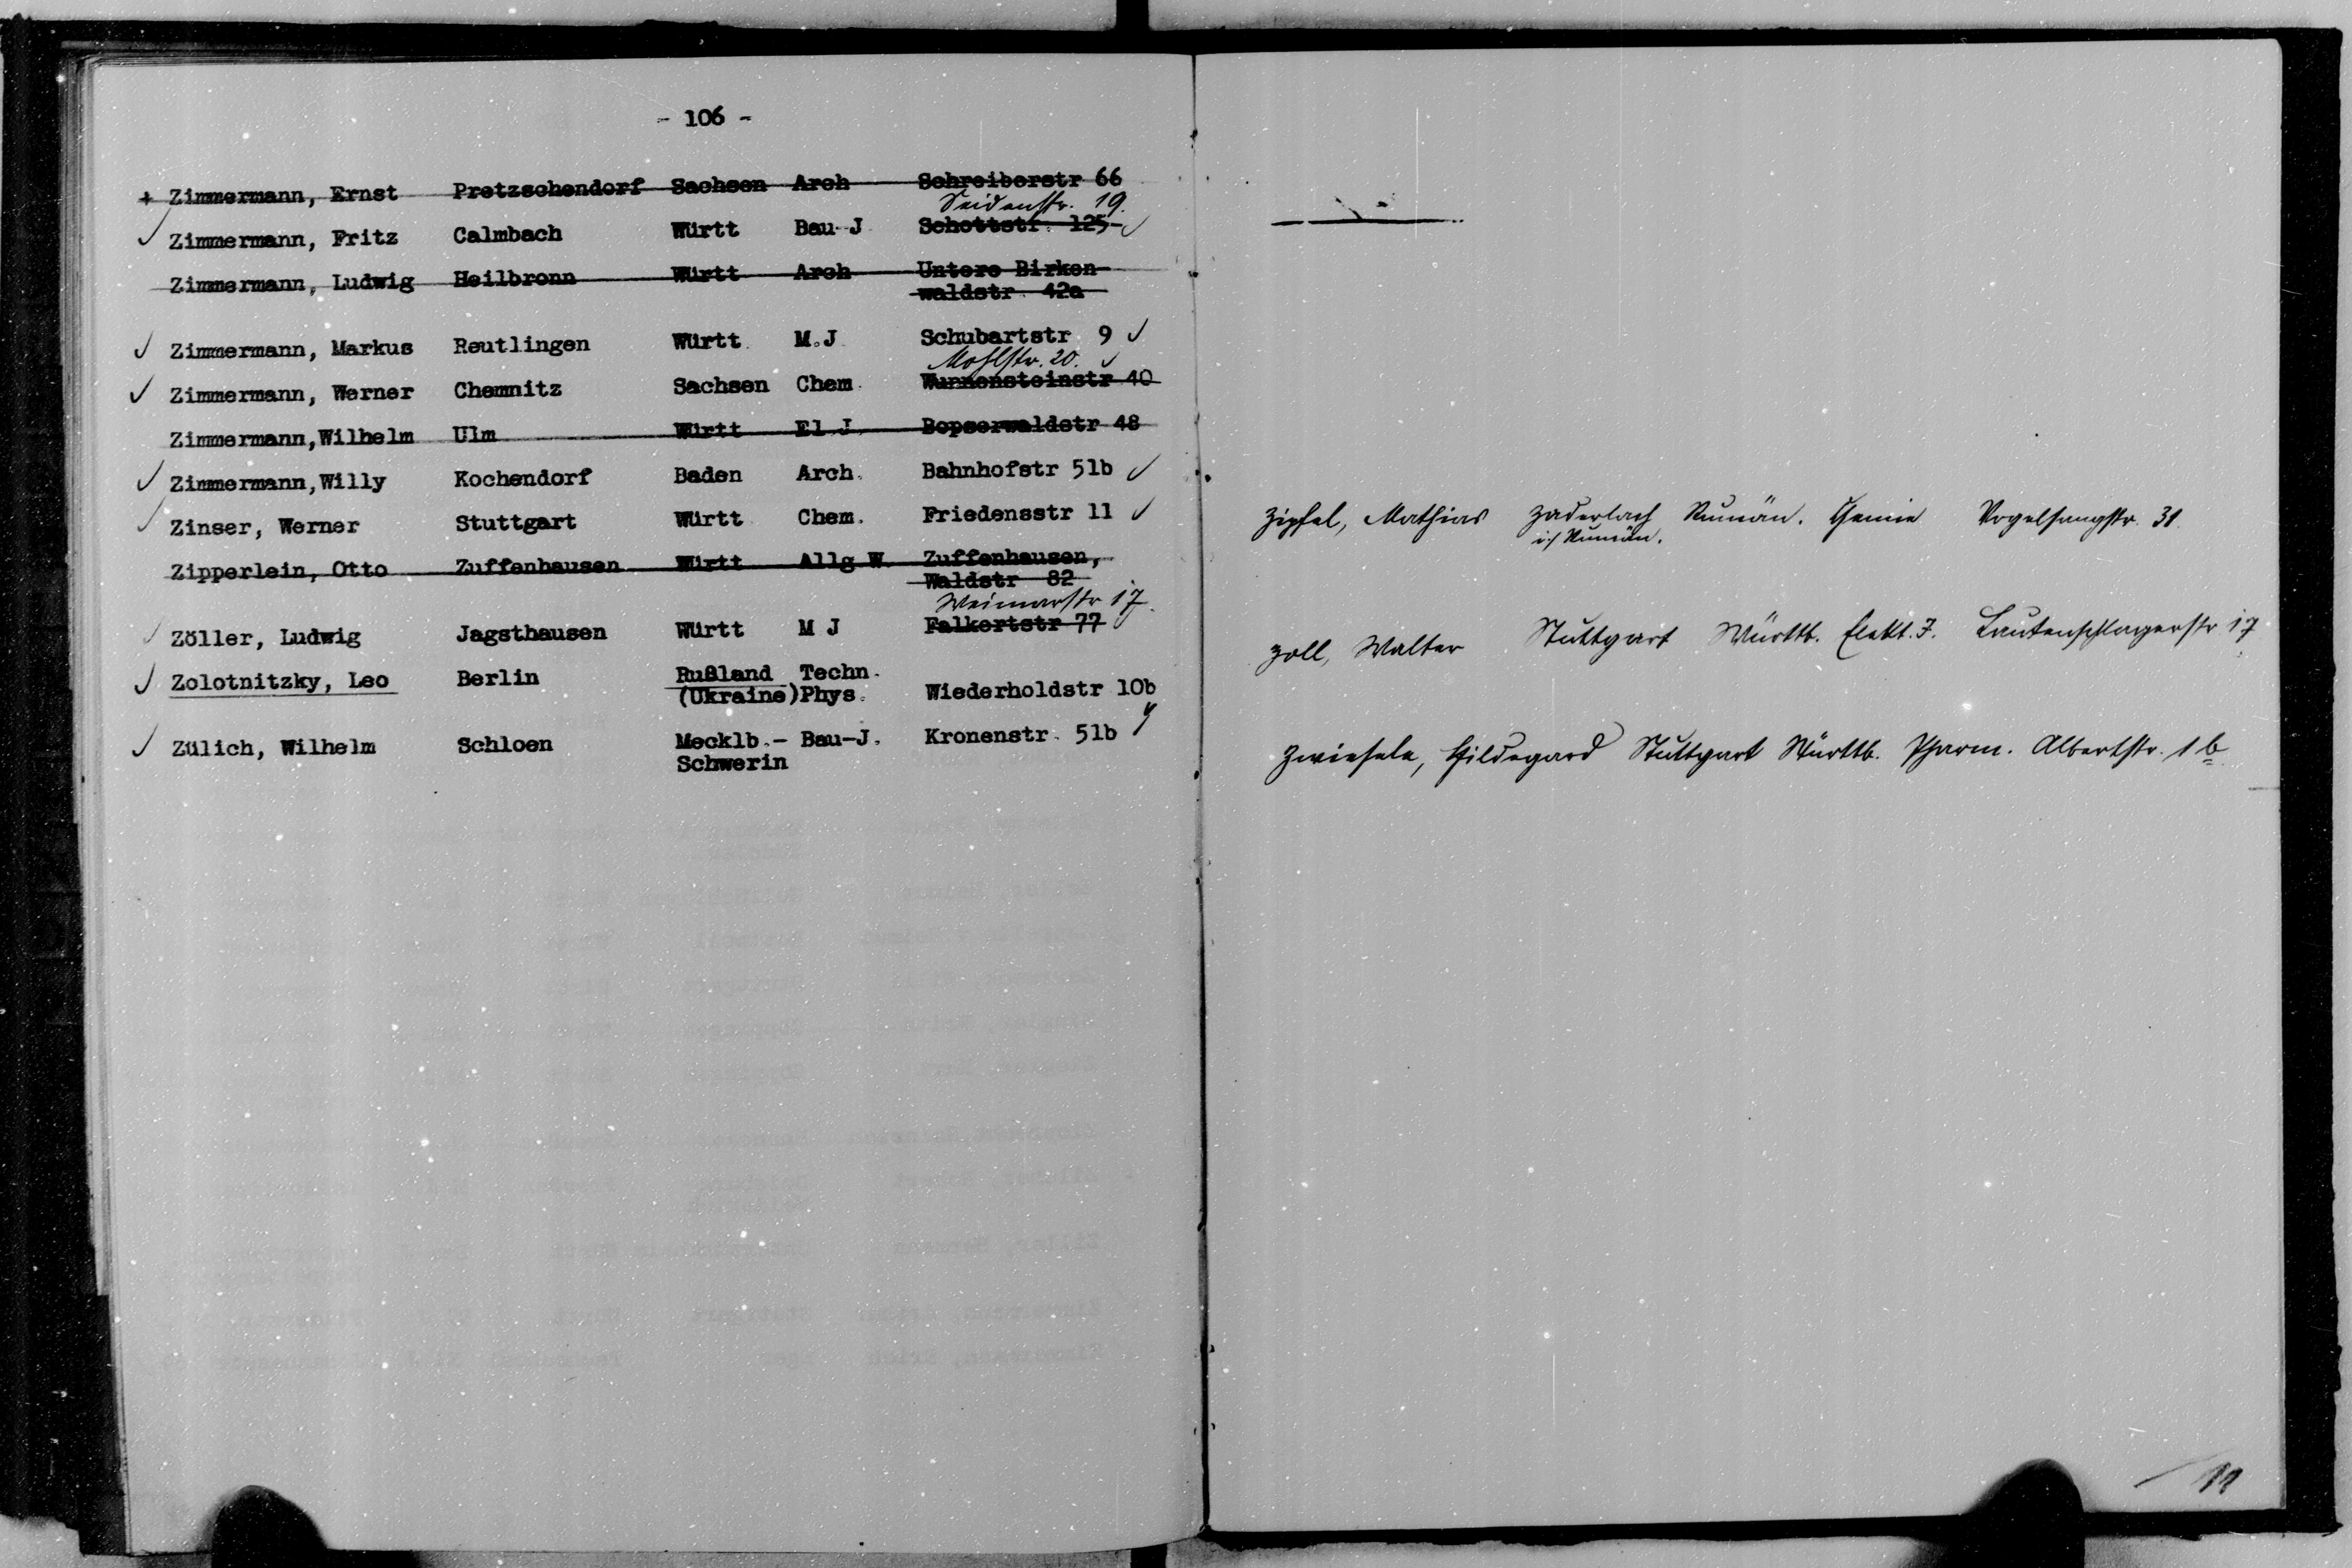 - 106 -
+ Zimmermann, Ernst Pretzschendorf Sachsen Arch Schreiberstr 66
Seidenstr. 19.
✓ Zimmermann, Fritz Calmbach Württ Bau-J Schottstr. 125 ✓
Zimmermann, Ludwig Heilbronn Württ Arch Untere Birken-
waldstr 42a
✓ Zimmermann, Markus Reutlingen Württ. M.J Schubartstr 9 ✓
Mohlstr. 20. ✓
✓ Zimmermann, Werner Chemnitz Sachsen Chem. Wunnensteinstr 40
Zimmermann,Wilhelm Ulm Württ El J. Bopserwaldstr 48
✓ Zimmermann,Willy Kochendorf Baden Arch. Bahnhofstr 51b ✓
✓ Zinser, Werner Stuttgart Württ Chem. Friedensstr 11 ✓
Zipperlein, Otto Zuffenhausen Württ Allg W. Zuffenhausen,
Waldstr 82
Weimarstr 17.
✓ Zöller, Ludwig Jagsthausen Württ M J Falkertstr 77 ✓
✓ Zolotnitzky, Leo Berlin Rußland Techn.
(Ukraine)Phys. Wiederholdstr 10b
✓ Zülich, Wilhelm Schloen Mecklb.- Bau-J. Kronenstr. 51b
Schwerin
Zipfel, Mathias Zaderlach Rumän. Chemie Vogelsangstr. 31.
i/ Rumän.
Zoll, Walter Stuttgart Württb. Elekt. J. Lautenschlagerstr 17
Zwiesele, Hildegard Stuttgart Württb. Pharm. Albertstr. 1b